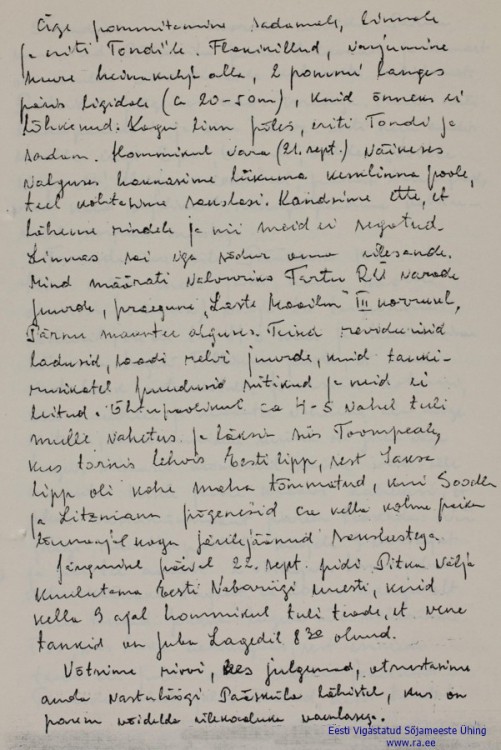 Äge pommitamine sadamale, linnale
ja eriti Tondi'le. Flakikillud, varjusime
suure heinakuhja alla, 2 pommi langes
päris ligidale (ca 20-50m), kuid õnneks ei
lõhkenud. Kogu linn põles, eriti Tondi ja
sadam. Hommikul vara (21. sept.) väikeses
valguses hakkasime liikuma kesklinna poole,
teel kohtasime sakslasi. Kandsime ette, et
läheme rindele ja nii meid ei segatud.
Linnas sai iga sõdur oma ülesande.
Mind määrati valvuriks Tartu RÜ varade
juurde, praegune "Laste Maailm" III korrusel,
Pärnu maantee alguses. Teised revideerisid
ladusid, saadi relvi juurde, kuid tanki-
rusikatel puudusid sütikud ja neid ei
leitud. Õhtupoolikul ca 4-5 vahel tuli
mulle vahetus ja läksin siis Toompeale,
kus tornis lehvis Eesti lipp, sest Saksa
lipp oli kohe maha tõmmatud, kui Soodla
ja Litzmann põgenesid ca kella kolme paiku
lõunaajal kogu järelejäänud sakslastega.
Järgmisel päeval 22. sept. pidi Pitka välja
kuulutama Eesti Vabariigi uuesti, kuid
kella 9 ajal hommikul tuli teade, et vene
tankid on juba Lagedil 8³⁰ olnud.
Võtsime rivvi, kes julgenud, otsustasime
anda vastulöögi Pääsküla lähistel, kus on
parem võidelda ülekaaluka vaenlasega.
Eesti Vigastatud Sõjameeste Ühing
www.ra.ee